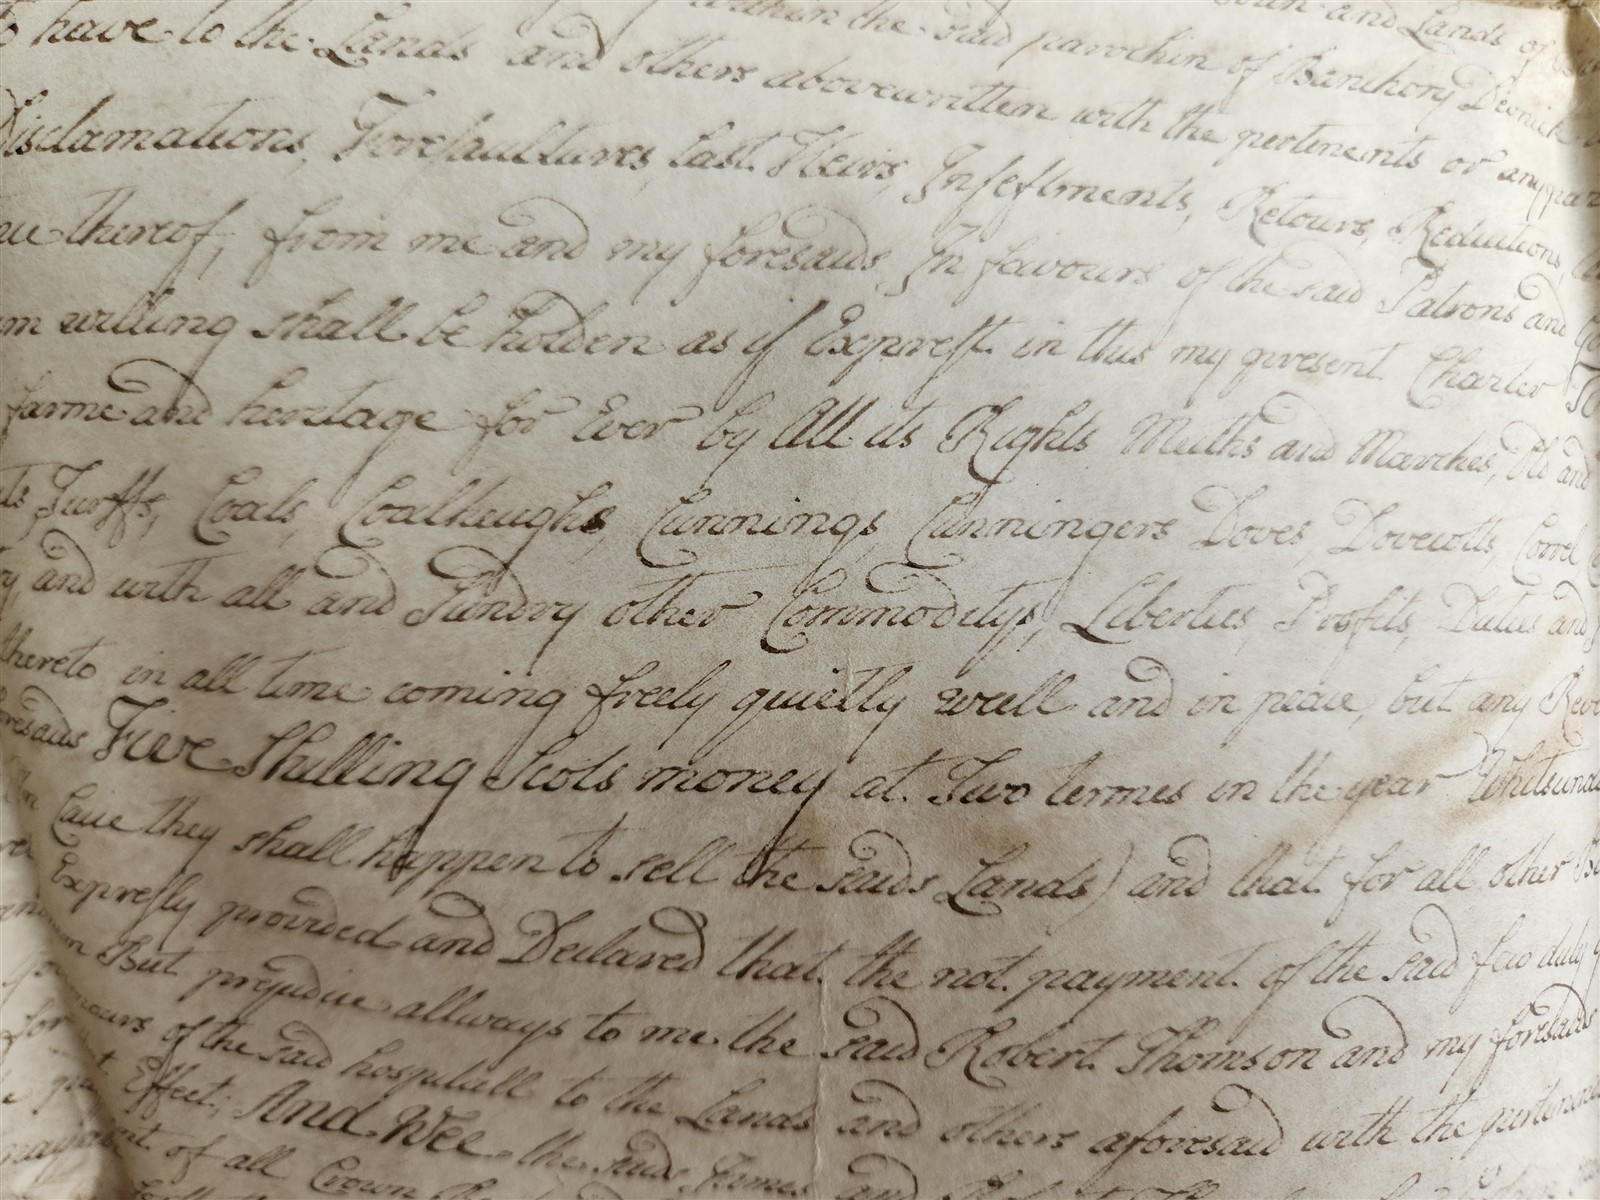 within the said parochin of Banchory Devnick
have to the Lands and others abovewritten with the pertenents or any
Disclamations, Forefaultures, Last Heirs, Infeftments, Retours, Reductions,
thereof, from me and my foresaids In favours of the said Patrons and
writing shall be holden as if Exprest in this my present Charter To
farme and heretage for Ever by All its Rights Meiths and Marches, Old and
Turffs, Coals, Coalheughs, Cunnings, Cunningers Doves, Dovecotts,
and with all and Sundry other Commoditys, Liberties, Profits, Duties and
thereto in all time coming freely quietly well and in peace, but any
foresaids Five Shilling Scots money at Two termes in the year
In Caice they shall happen to sell the saids Lands) and that for all other
Expressly provided and Declared that the not payment of the said few duty
But prejudice allways to me the said Robert Thomson and my foresaids
of the said hospitall to the Lands and others aforesaid with the
Effect; And Wee the saids James and
of all Crown